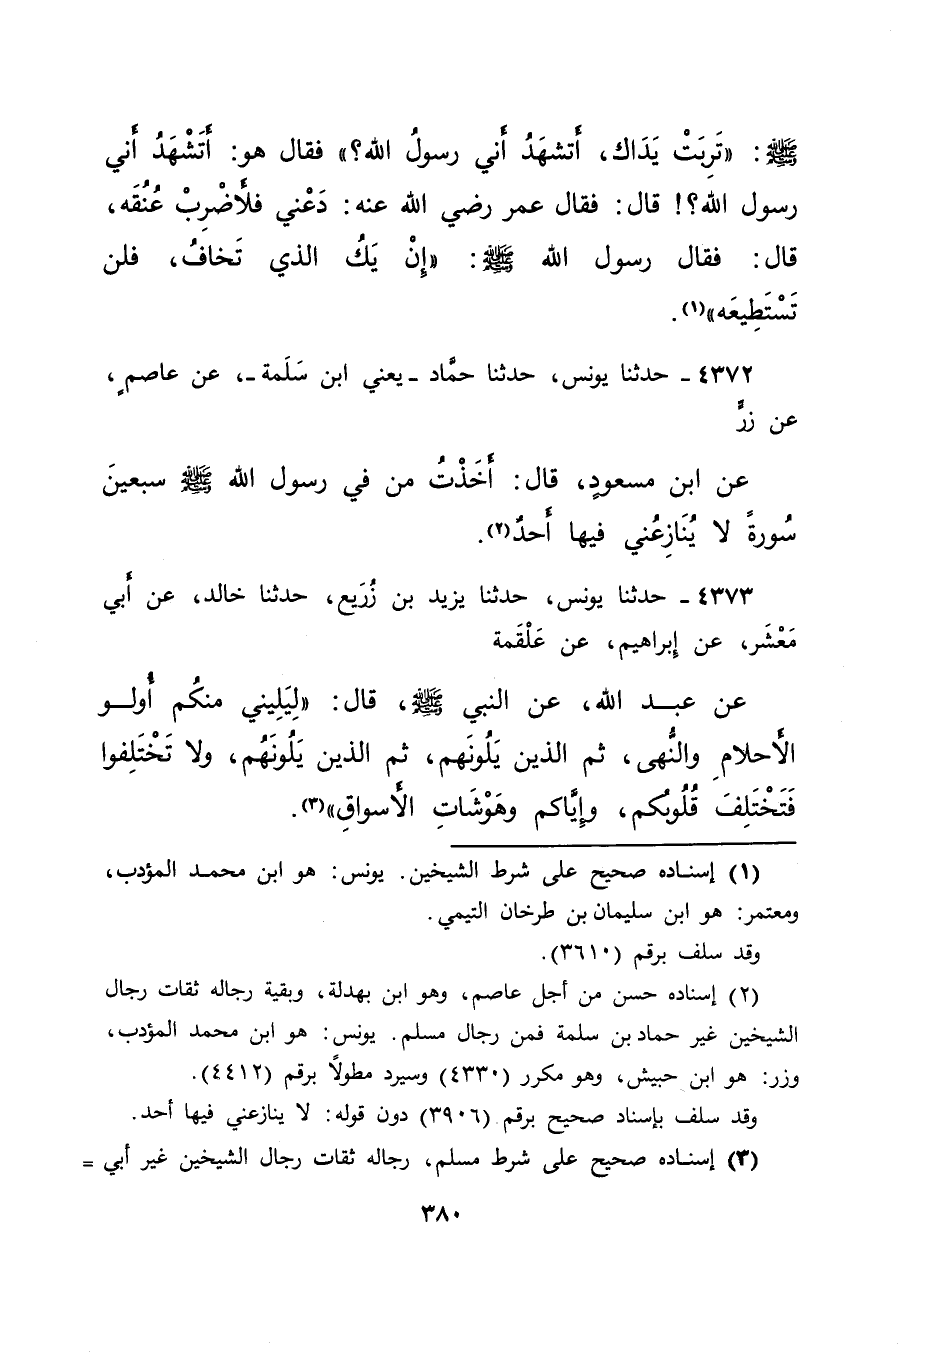 ﷺ: «تَرِبَتْ يَدَاك، أَتشهَدُ أَني رسولُ الله؟» فقال هو: أَتَشْهَدُ أَني
رسول الله؟! قال: فقال عمر رضي الله عنه: دَعْني فلأَضْرِبْ عُنُقَه،
قال: فقال رسول الله ﷺ: «إِنْ يَكُ الذي تَخافُ، فلن
تَسْتَطِيعَه»(١).
٤٣٧٢ ـ حدثنا يونس، حدثنا حمَّاد ـ يعني ابن سَلَمة ـ، عن عاصمٍ،
عن زرٍّ
عن ابن مسعودٍ، قال: أَخَذْتُ من في رسول الله ﷺ سبعينَ
سُورةً لا يُنَازِعُني فيها أَحدٌ(٢).
٤٣٧٣ ـ حدثنا يونس، حدثنا يزيد بن زُرَيع، حدثنا خالد، عن أَبي
مَعْشَر، عن إِبراهيم، عن عَلْقَمة
عن عبد الله، عن النبي ﷺ، قال: «لِيَلِيني منكُم أُولو
الأَحلامِ والنُّهى، ثم الذين يَلُونَهم، ثم الذين يَلُونَهُم، ولا تَخْتَلِفوا
فَتَخْتَلِفَ قُلُوبُكم، وإِيَّاكم وهَوْشَاتِ الأَسواقِ»(٣).
(١) إسناده صحيح على شرط الشيخين. يونس: هو ابن محمد المؤدب،
ومعتمر: هو ابن سليمان بن طرخان التيمي.
وقد سلف برقم (٣٦١٠).
(٢) إسناده حسن من أجل عاصم، وهو ابن بهدلة، وبقية رجاله ثقات رجال
الشيخين غير حماد بن سلمة فمن رجال مسلم. يونس: هو ابن محمد المؤدب،
وزر: هو ابن حبيش، وهو مكرر (٤٣٣٠) وسيرد مطولاً برقم (٤٤١٢).
وقد سلف بإسناد صحيح برقم (٣٩٠٦) دون قوله: لا ينازعني فيها أحد.
(٣) إسناده صحيح على شرط مسلم، رجاله ثقات رجال الشيخين غير أبي =
٣٨٠